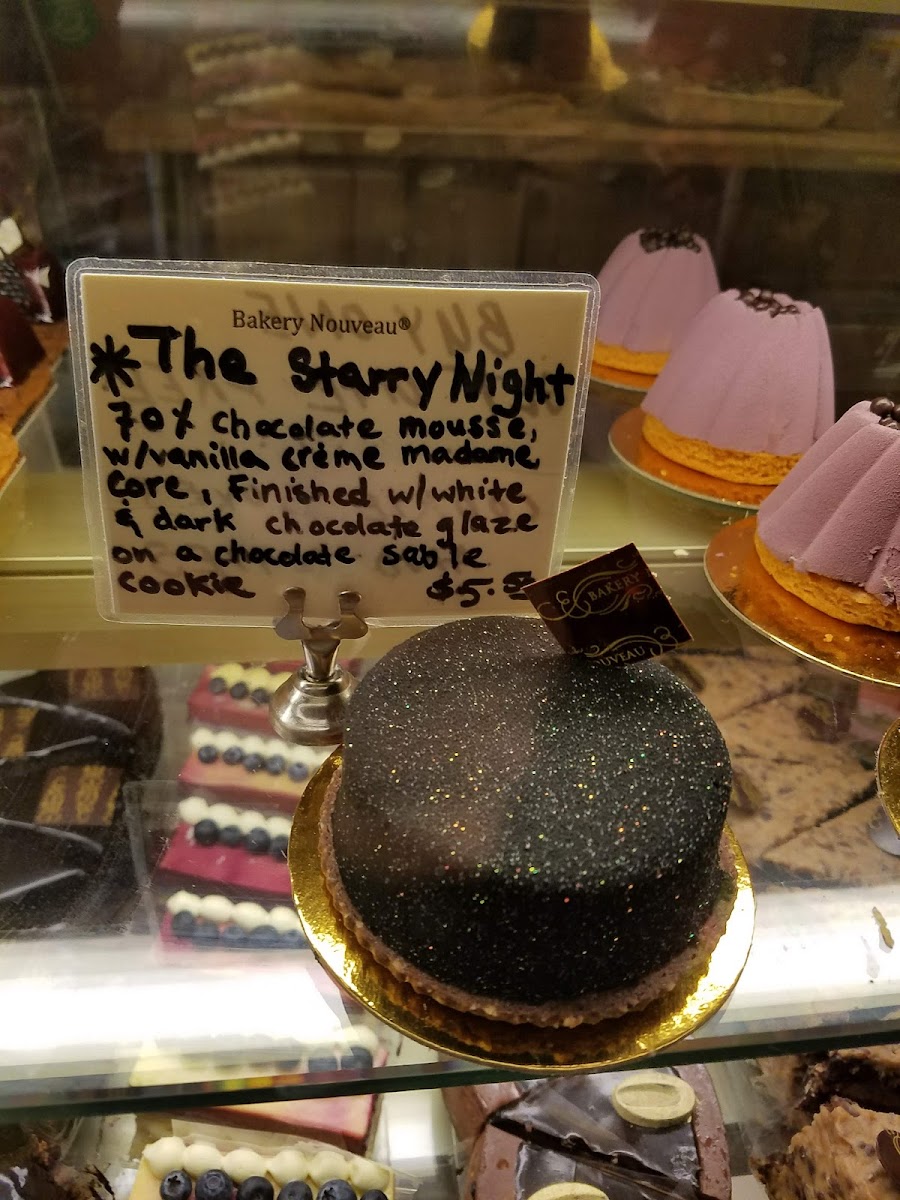 Bakery Nouveau®
*The Starry Night
70% Chocolate mousse,
w/vanilla crème madame
core, finished w/white
& dark chocolate glaze
on a chocolate sable
cookie $5.
BAKERY
NOUVEAU
BUY ONE